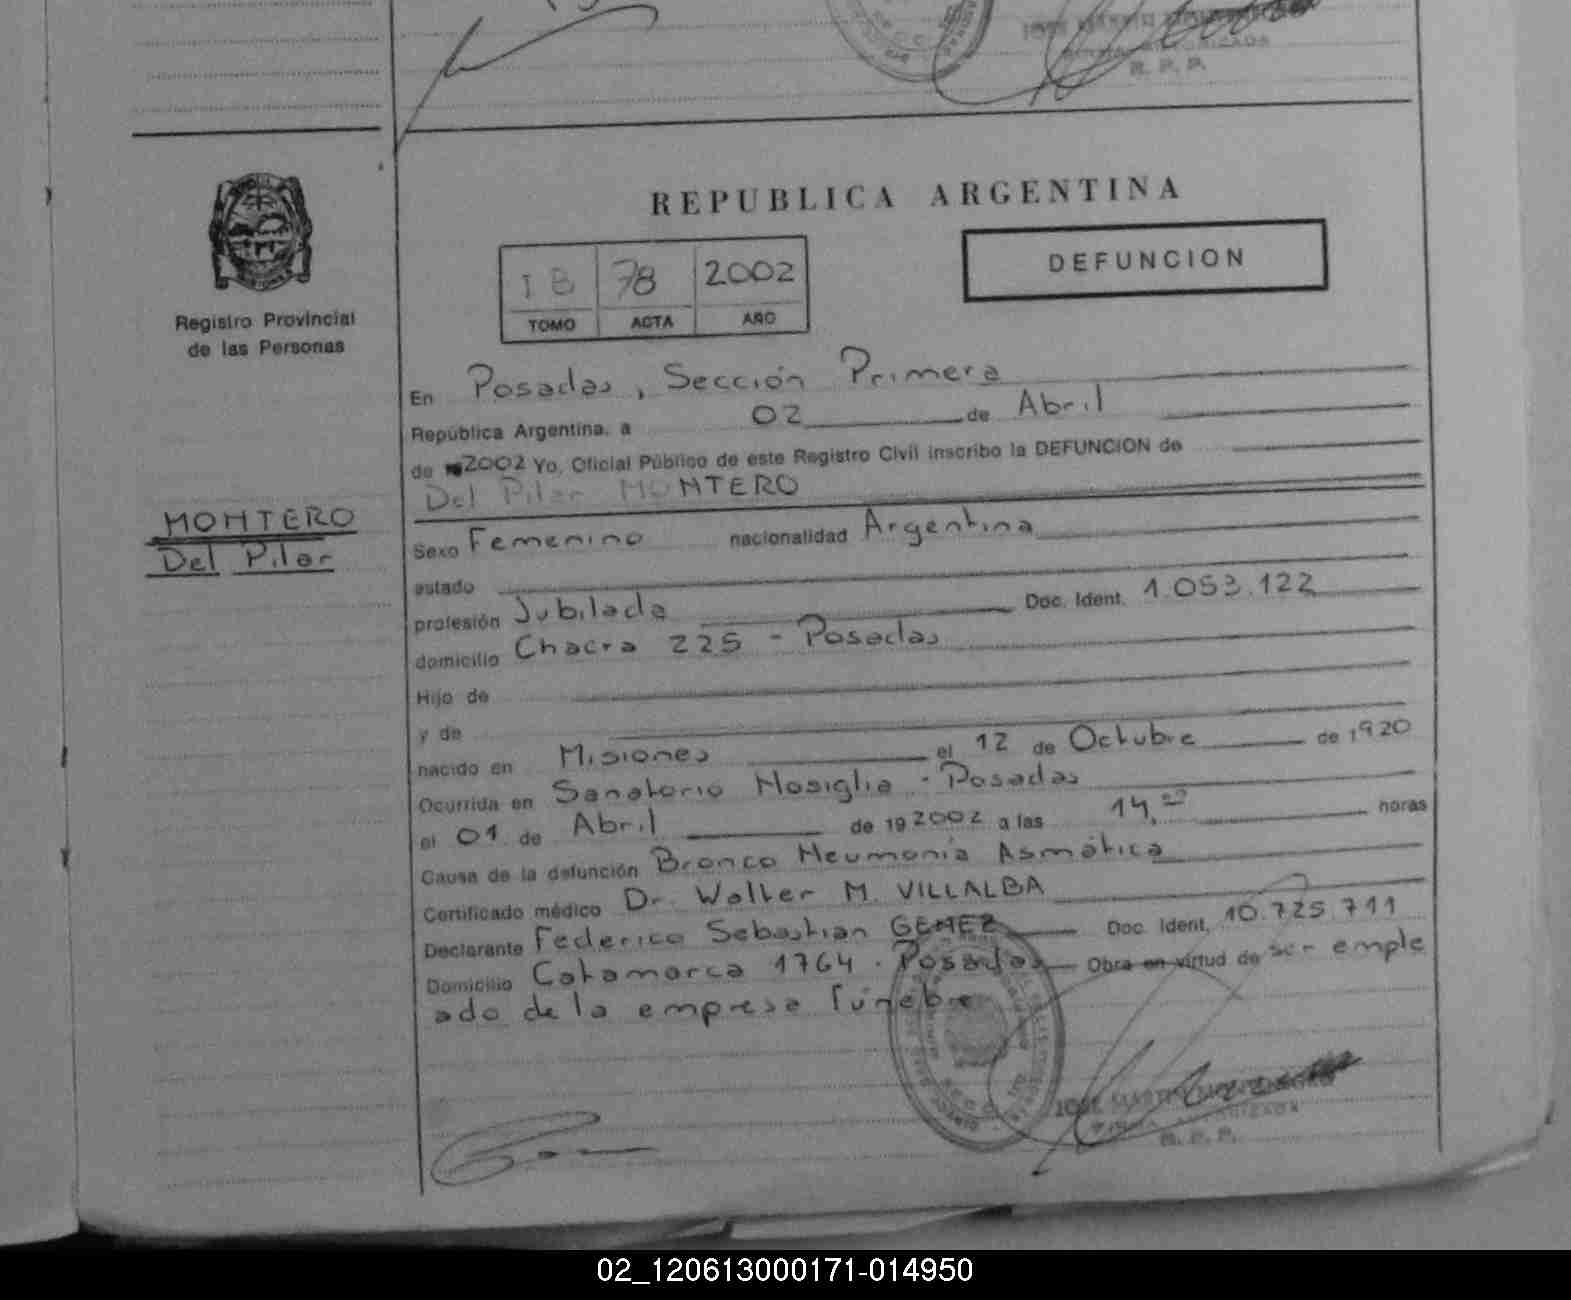 REPUBLICA ARGENTINA
I B 78 2002
TOMO ACTA AÑO
DEFUNCION
Registro Provincial
de las Personas
En Posadas, Sección Primera
República Argentina, a 02 de Abril
de 2002 Yo, Oficial Público de este Registro Civil inscribo la DEFUNCION de
Del Pilar MONTERO
MONTERO
Del Pilar
Sexo Femenino nacionalidad Argentina
estado
profesión Jubilada Doc. Ident. 1.053.122
domicilio Chacra 225 - Posadas
Hijo de
y de
nacido en Misiones el 12 de Octubre de 1920
Ocurrida en Sanatorio Nosiglia - Posadas
el 01 de Abril de 19 2002 a las 14,00 horas
Causa de la defunción Bronco Neumonía Asmática
Certificado médico Dr. Walter M. VILLALBA
Declarante Federico Sebastian GEMEZ Doc. Ident. 10.725.711
Domicilio Catamarca 1764 - Posadas Obra en virtud de ser emple
ado de la empresa fúnebre
R. P. P.
02_120613000171-014950